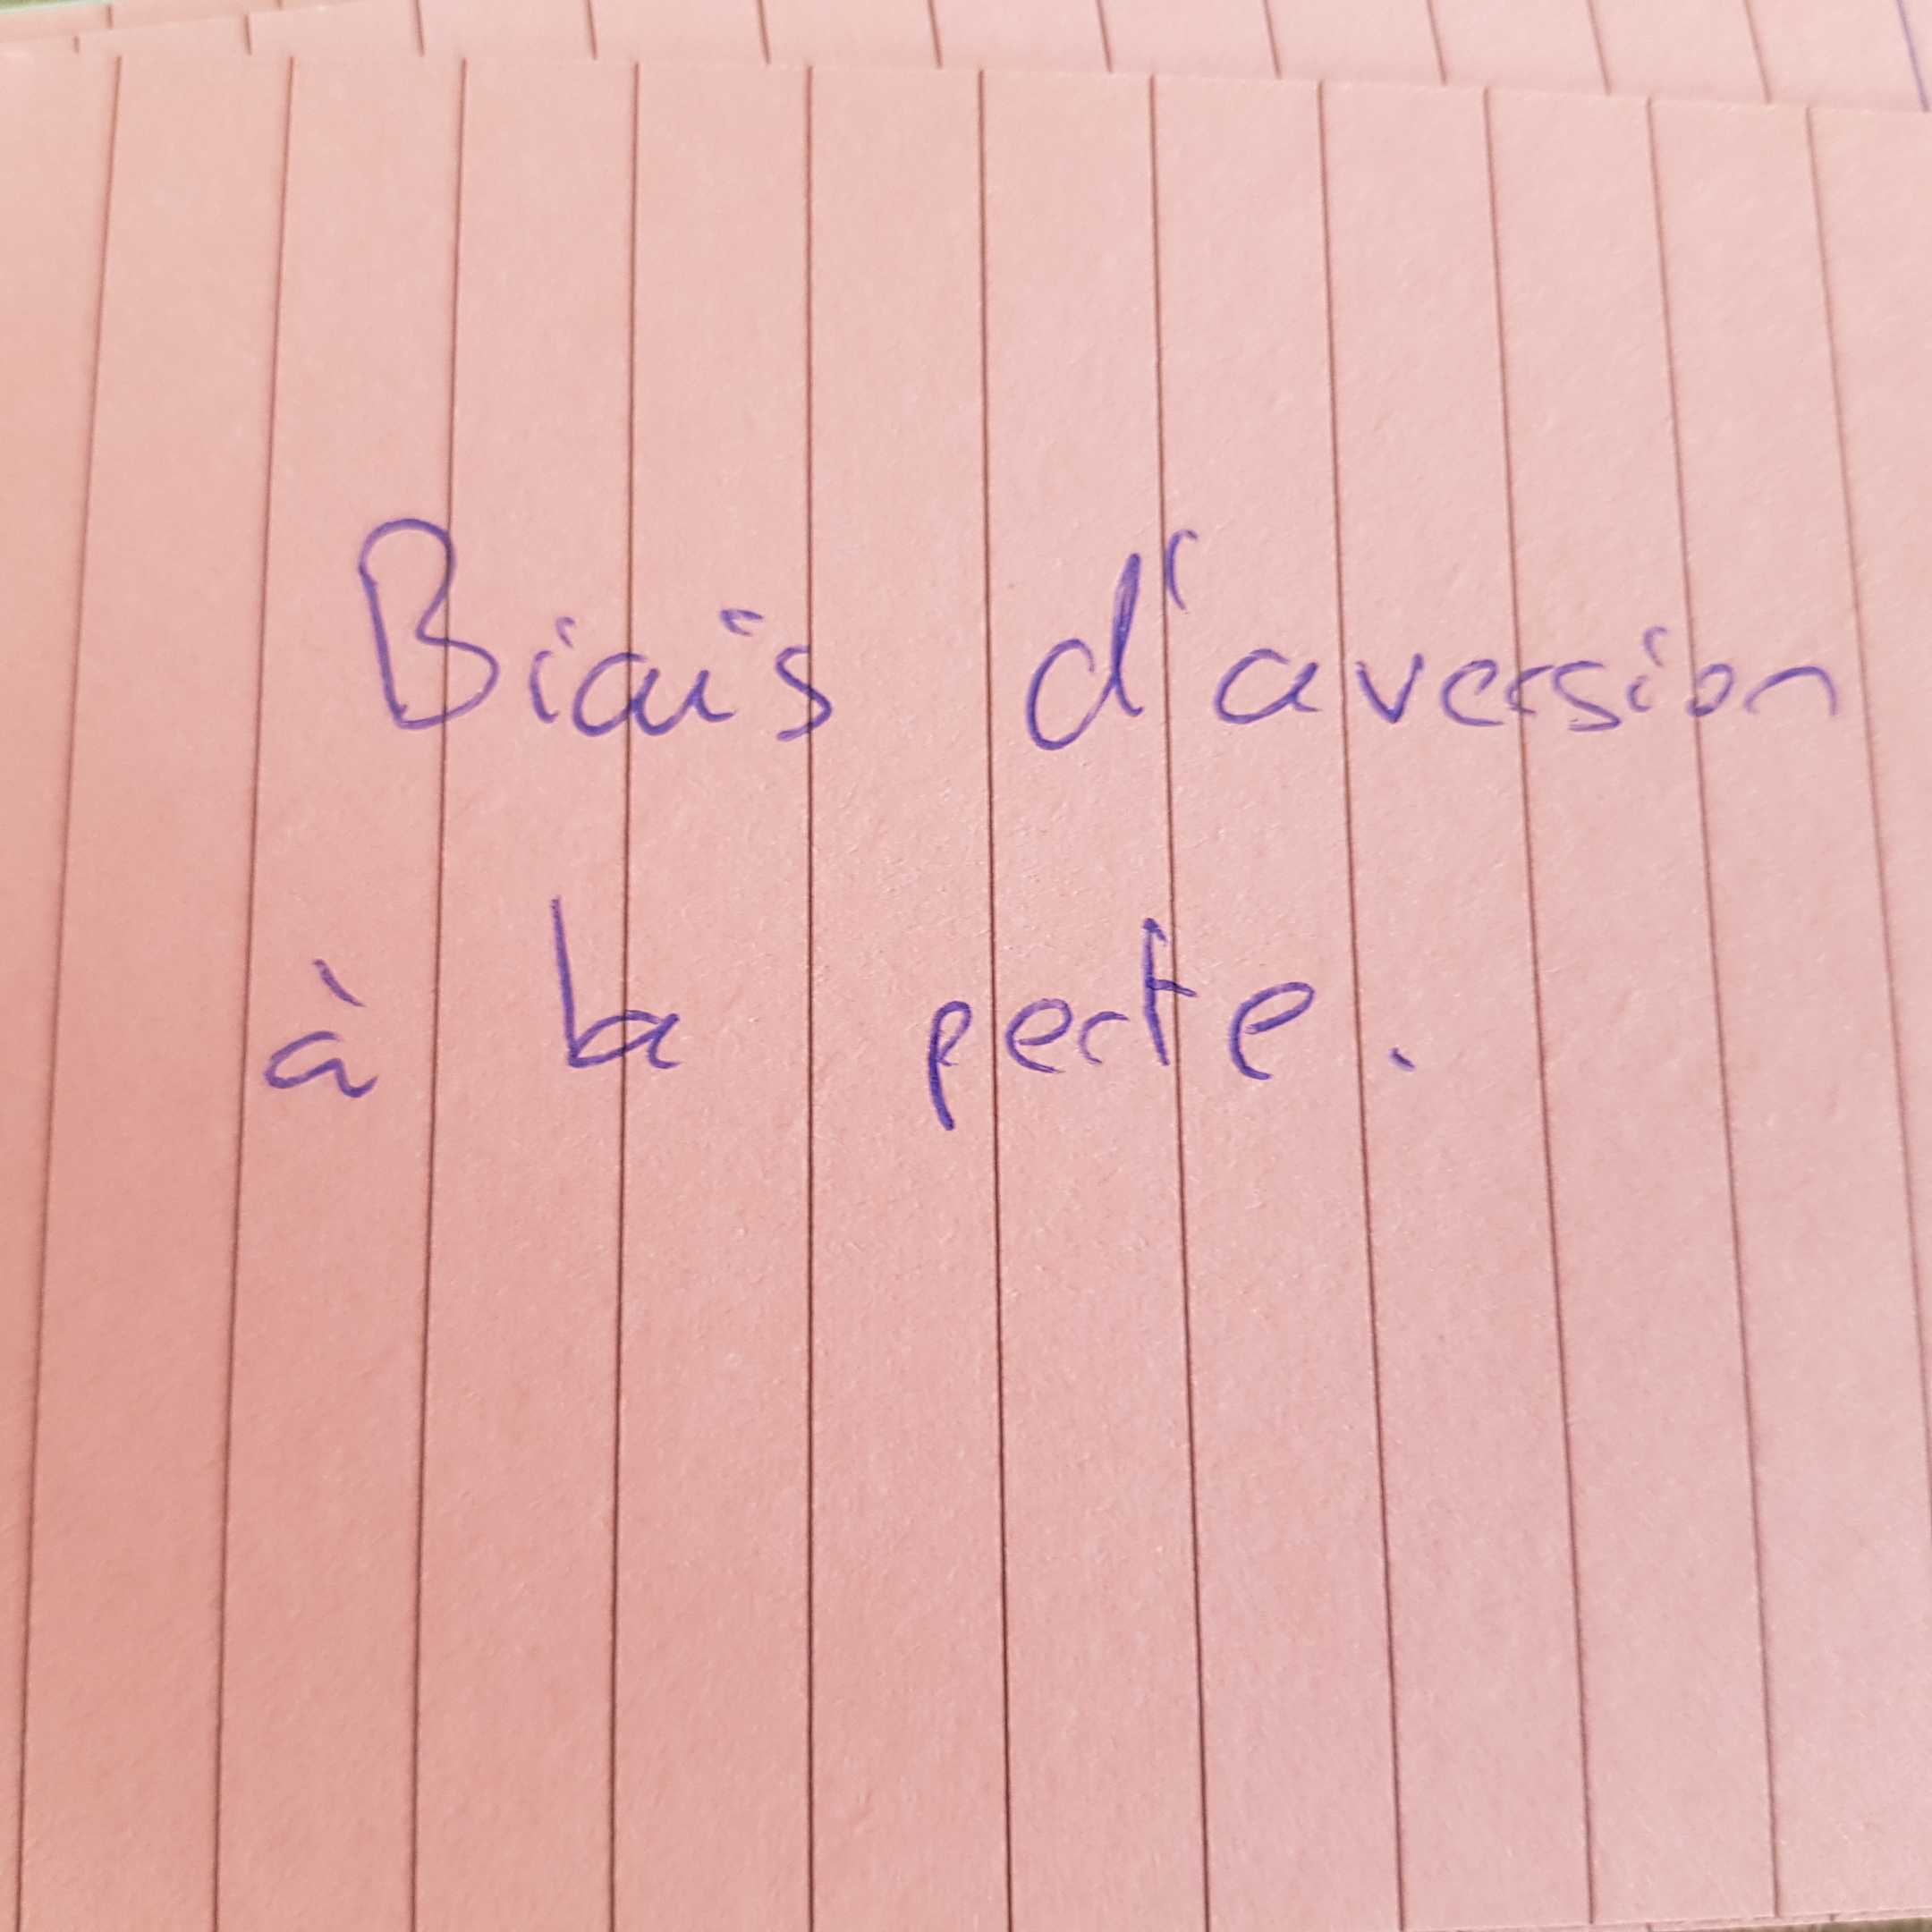 Biais d'aversion
à la perte.